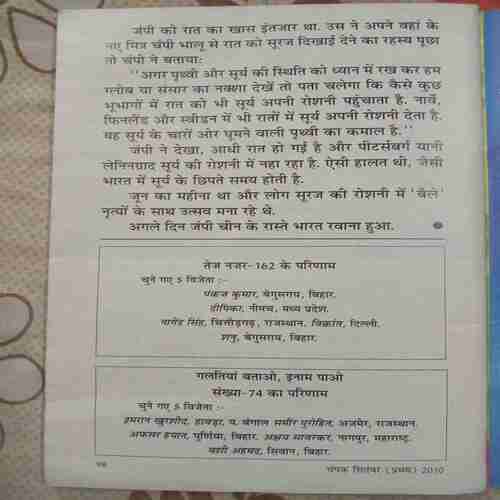 जंपी को रात का खास इंतजार था. उस ने अपने वहां के
नए मित्र चंपी भालू से रात को सूरज दिखाई देने का रहस्य पूछा
तो चंपी ने बताया:
''अगर पृथ्वी और सूर्य की स्थिति को ध्यान में रख कर हम
ग्लोब या संसार का नक्शा देखें तो पता चलेगा कि कैसे कुछ
भूभागों में रात को भी सूर्य अपनी रोशनी पहुंचाता है. नार्वे,
फिनलैंड और स्वीडन में भी रातों में सूर्य अपनी रोशनी देता है.
यह सूर्य के चारों ओर घूमने वाली पृथ्वी का कमाल है.''
जंपी ने देखा, आधी रात हो गई है और पीटर्सबर्ग यानी
लेनिनग्राद सूर्य की रोशनी में नहा रहा है. ऐसी हालत थी, जैसी
भारत में सूर्य के छिपते समय होती है.
जून का महीना था और लोग सूरज की रोशनी में 'बैले'
नृत्यों के साथ उत्सव मना रहे थे.
अगले दिन जंपी चीन के रास्ते भारत रवाना हुआ.
तेज नजर-162 के परिणाम
चुने गए 5 विजेता :-
पंकज कुमार, बेगुसराय, बिहार.
दीपिका, नीमच, मध्य प्रदेश.
नागेंद्र सिंह, चित्तौड़गढ़, राजस्थान. विक्रांत, दिल्ली.
शनु, बेगुसराय, बिहार.
गलतियां बताओ, इनाम पाओ
संख्या-74 का परिणाम
चुने गए 5 विजेता :-
इमरान खुरशीद, हावड़ा, प. बंगाल समीर पुरोहित, अजमेर, राजस्थान.
अफसर हयात, पूर्णिया, बिहार. अक्षय सावरकर, नागपुर, महाराष्ट्र.
यशी अहमद, सिवान, बिहार.
चंपक सितंबर (प्रथम) 2010